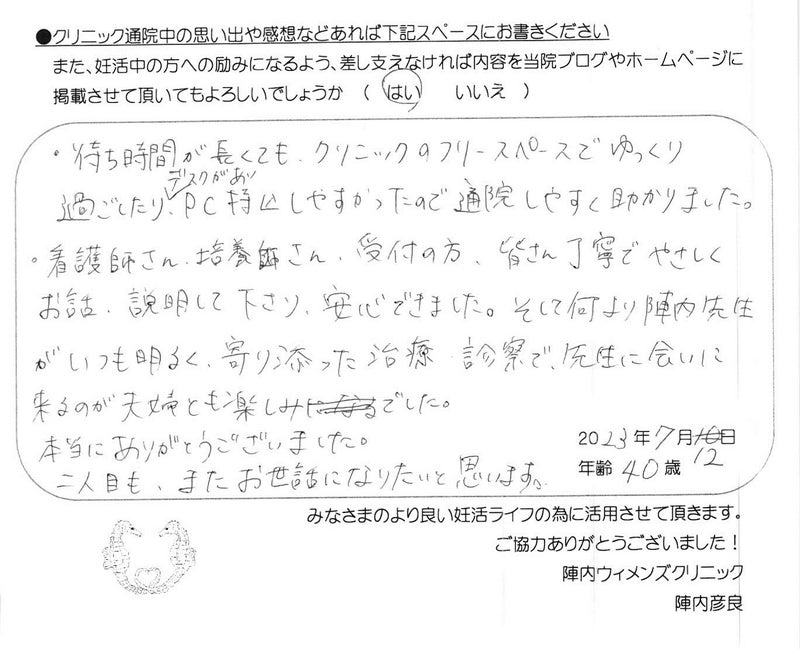 ●クリニック通院中の思い出や感想などあれば下記スペースにお書きください
また、妊活中の方への励みになるよう、差し支えなければ内容を当院ブログやホームページに
掲載させて頂いてもよろしいでしょうか （ はい　　いいえ ）
・待ち時間が長くても、クリニックのフリースペースでゆっくり
デスクがあり
過ごしたり、PC持込しやすかったので通院しやすく助かりました。
・看護師さん、培養師さん、受付の方、皆さん丁寧でやさしく
お話、説明して下さり、安心できました。そして何より陣内先生
がいつも明るく、寄り添った治療、診察で、先生に会いに
来るのが夫婦とも楽しみになるでした。
本当にありがとうございました。
二人目も、またお世話になりたいと思います。
2023年7月10日
12
年齢 40歳
みなさまのより良い妊活ライフの為に活用させて頂きます。
ご協力ありがとうございました！
陣内ウィメンズクリニック
陣内彦良